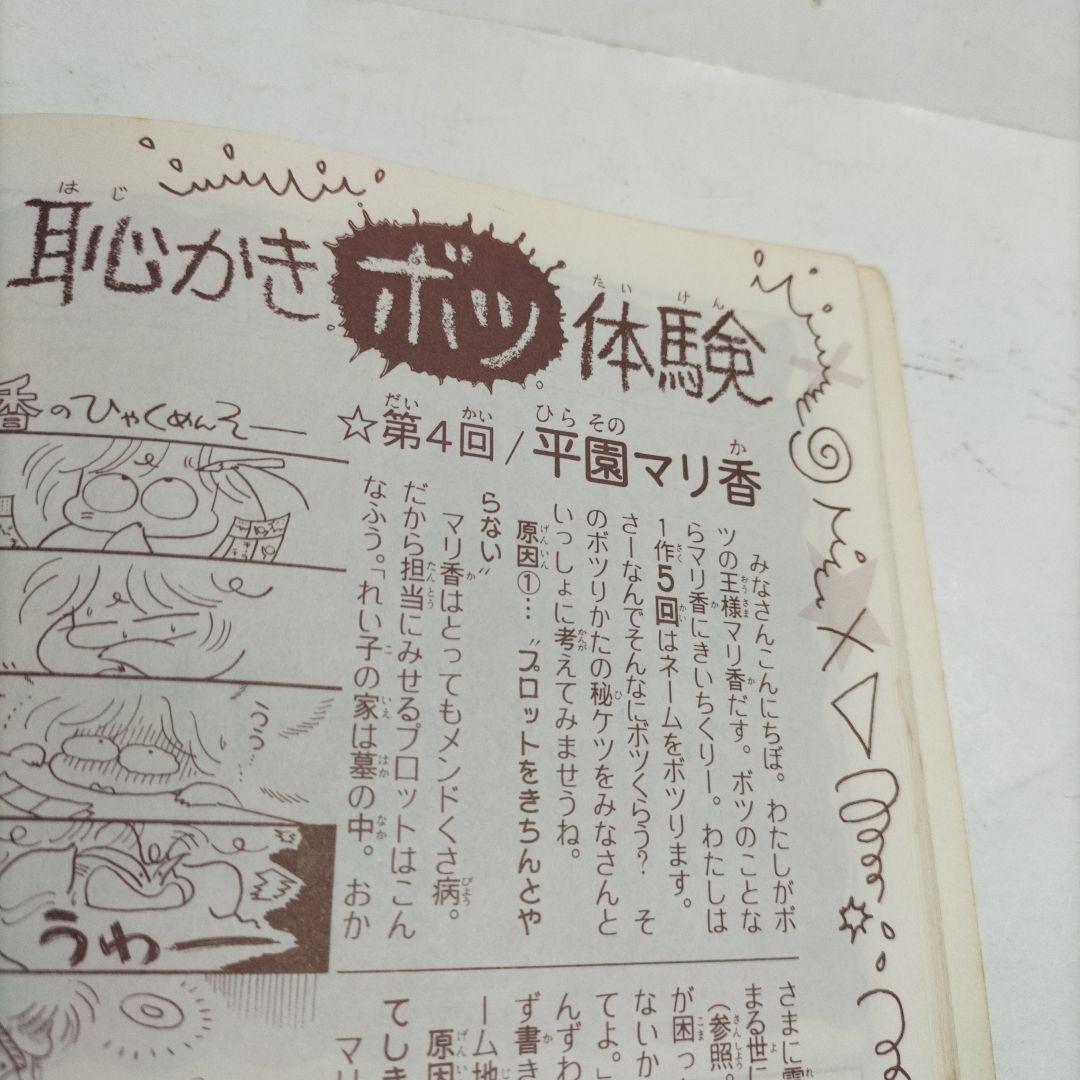 恥かきボツ体験
☆第4回/平園マリ香
みなさんこんにちば。わたしがボ
ツの王様マリ香だす。ボツのことな
らマリ香にきいちくりー。わたしは
1作5回はネームをボツります。
さーなんでそんなにボツくらう？そ
のボツりかたの秘ケツをみなさんと
いっしょに考えてみませうね。
原因①…〝プロットをきちんとや
らない〟
マリ香はとってもメンドくさ病。
だから担当にみせるプロットはこん
なふう。「れい子の家は墓の中。おか
香のひゃくめんそー
うわー
さまに
まる世に
（参照。
が困っ
ないか
てよ。」
んずわ
ず書き
ーム地
原因
てしき
マリ